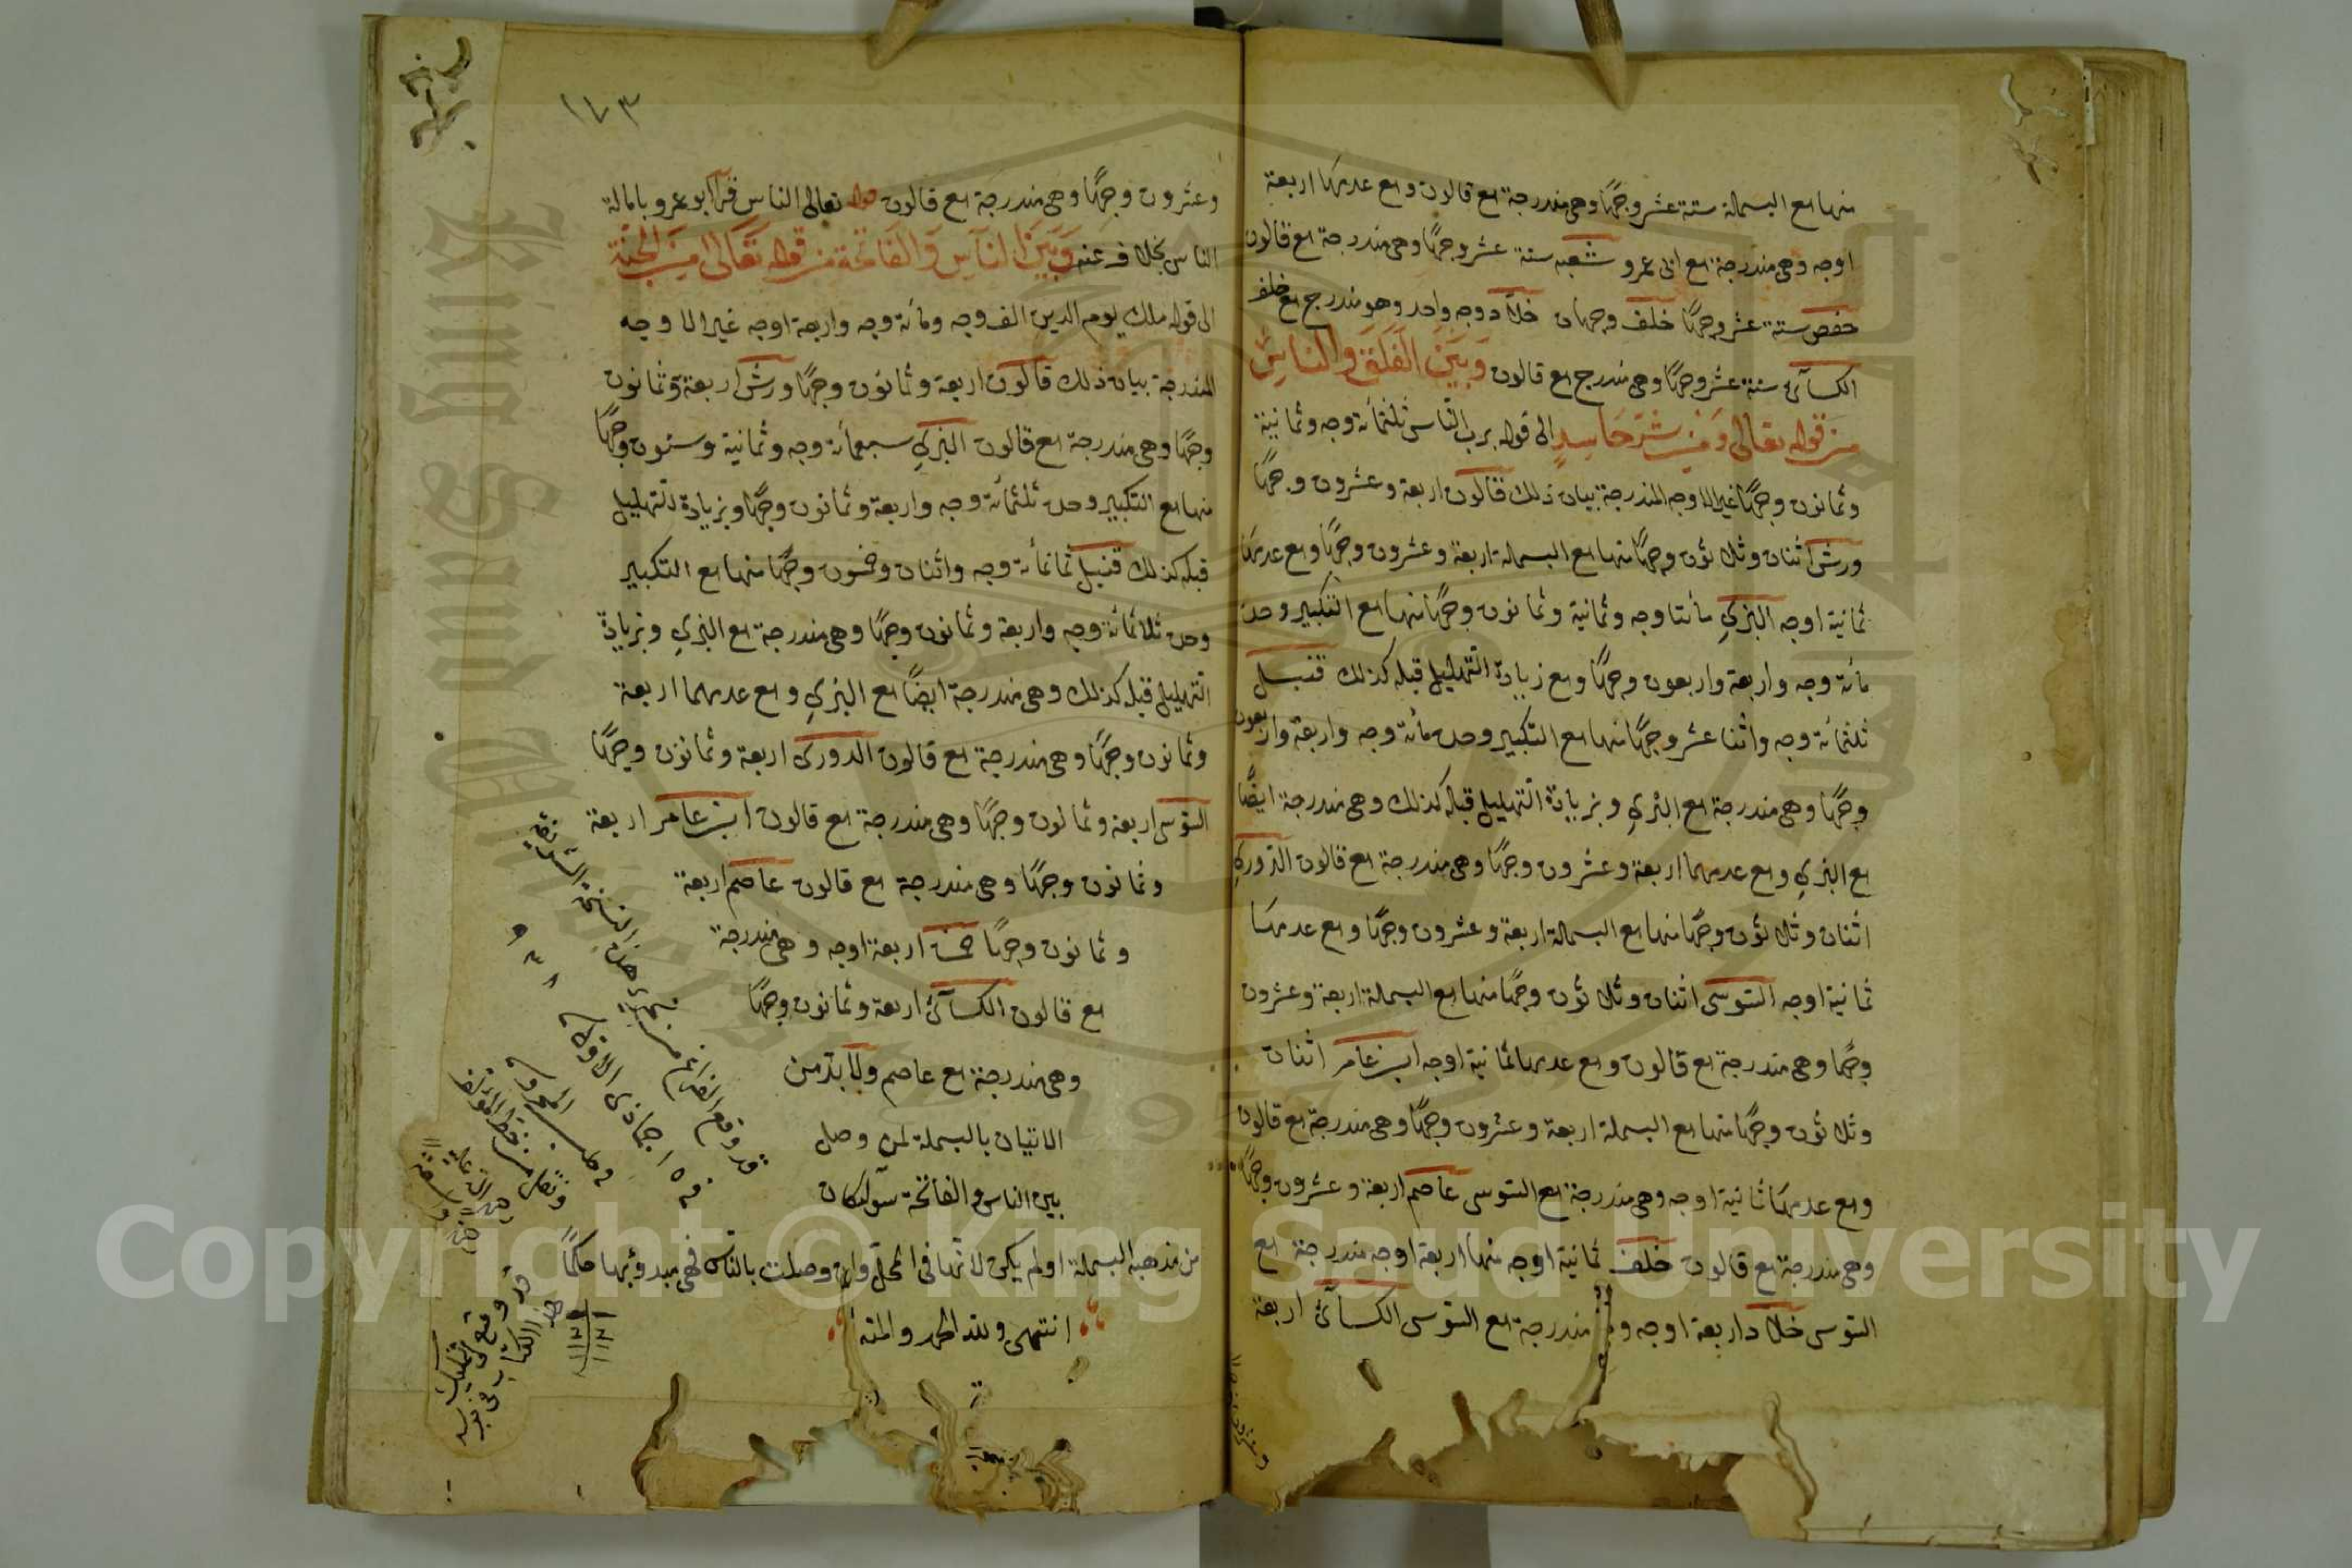 منها مع البسملة ستة عشر وجهًا وهى مندرجة مع قالون ومع عدمها اربعة
اوجه وهى مندرجة مع ابى عمرو شعبه ستة عشر وجهًا وهى مندرجة مع قالون
حفص ستة عشر وجهًا خلف وجهان خلاد وجه واحد وهو مندرج مع خلف
الكسآئ ستة عشر وجهًا وهى مندرج مع قالون وَبَيْنَ الْفَلَقِ وَالنَّاسِ
مِنْ قوله تعالى وَمِنْ شَرِّ حَاسِدٍ الى قوله برب النّاس ثلثمائة وجه وثمانية
وثمانون وجهًا غير الاوجه المندرجة بيان ذلك قالون اربعة وعشرون وجهًا
ورش اثنان وثلاثون وجهًا منها مع البسملة اربعة وعشرون وجهًا ومع عدمها
ثمانية اوجه البزي مائتا وجه وثمانية وثمانون وجهًا منها مع التكبير وحده
مائة وجه واربعة واربعون وجهًا ومع زيادة التهليل قبله كذلك قنبل
ثلثمائة وجه واثنا عشر وجهًا منها مع التكبير وحده مائة وجه واربعة واربعون
وجهًا وهى مندرجة مع البزي وبزيادة التهليل قبله كذلك وهى مندرجة ايضًا
مع البزي ومع عدمهما اربعة وعشرون وجهًا وهى مندرجة مع قالون الدّوري
اثنان وثلاثون وجهًا منها مع البسملة اربعة وعشرون وجهًا ومع عدمها
ثمانية اوجه السّوسى اثنان وثلاثون وجهًا منها مع البسملة اربعة وعشرون
وجهًا وهى مندرجة مع قالون ومع عدمها ثمانية اوجه ابن عامر اثنان
وثلاثون وجهًا منها مع البسملة اربعة وعشرون وجهًا وهى مندرجة مع قالون
ومع عدمها ثمانية اوجه وهى مندرجة مع السّوسى عاصم اربعة وعشرون وجهًا
وهى مندرجة مع قالون خلف ثمانية اوجه منها اربعة اوجه مندرجة مع
السّوسى خلاد اربعة اوجه وهى مندرجة مع السّوسى الكسآئ اربعة
وعشرون
١٧٣
وعشرون وجهًا وهى مندرجة مع قالون قوله تعالى الناس قرأ ابو عمرو بامالة
الناس بخلاف عنه وَبَيْنَ النَّاسِ وَالْفَاتِحَة مِن قوله تَعَالَى مِنَ الْجِنَّةِ
الى قوله ملك يوم الدين الف وجه ومائة وجه واربعة اوجه غير الاوجه
المندرجة بيان ذلك قالون اربعة وثمانون وجهًا ورش اربعة وثمانون
وجهًا وهى مندرجة مع قالون البزي سبعمائة وجه وثمانية وستون وجهًا
منها مع التكبير وحده ثلثمائة وجه واربعة وثمانون وجهًا وبزيادة التهليل
قبله كذلك قنبل ثمانمائة وجه واثنان وخمسون وجهًا منها مع التكبير
وحده ثلاثمائة وجه واربعة وثمانون وجهًا وهى مندرجة مع البزي وبزيادة
التهليل قبله كذلك وهى مندرجة ايضًا مع البزي ومع عدمهما اربعة
وثمانون وجهًا وهى مندرجة مع قالون الدوري اربعة وثمانون وجهًا
السّوسى اربعة وثمانون وجهًا وهى مندرجة مع قالون ابن عامر اربعة
وثمانون وجهًا وهى مندرجة مع قالون عاصم اربعة
وثمانون وجهًا حمزة اربعة اوجه وهى مندرجة
مع قالون الكسآئ اربعة وثمانون وجهًا
وهى مندرجة مع عاصم ولا بدّ من
الاتيان بالبسملة لمن وصل
بين الناس والفاتحة سوآء كان
من مذهبه البسملة او لم يكن لانّها فى المحلّ وان وصلت بالنّاس فهى مبدؤ بها حكمًا
انتهى ولله الحمد والمنة
قد وقع الفراغ من تحرير هذه النسخة الشريفة
فى ١٥ جمادى الاولى ٩٣١
ونقل من خط المؤلف
قد وقع فى تمليك
هذا الكتاب فى نوبه
١١٢١
Copyright © King Saud University
King Saud University